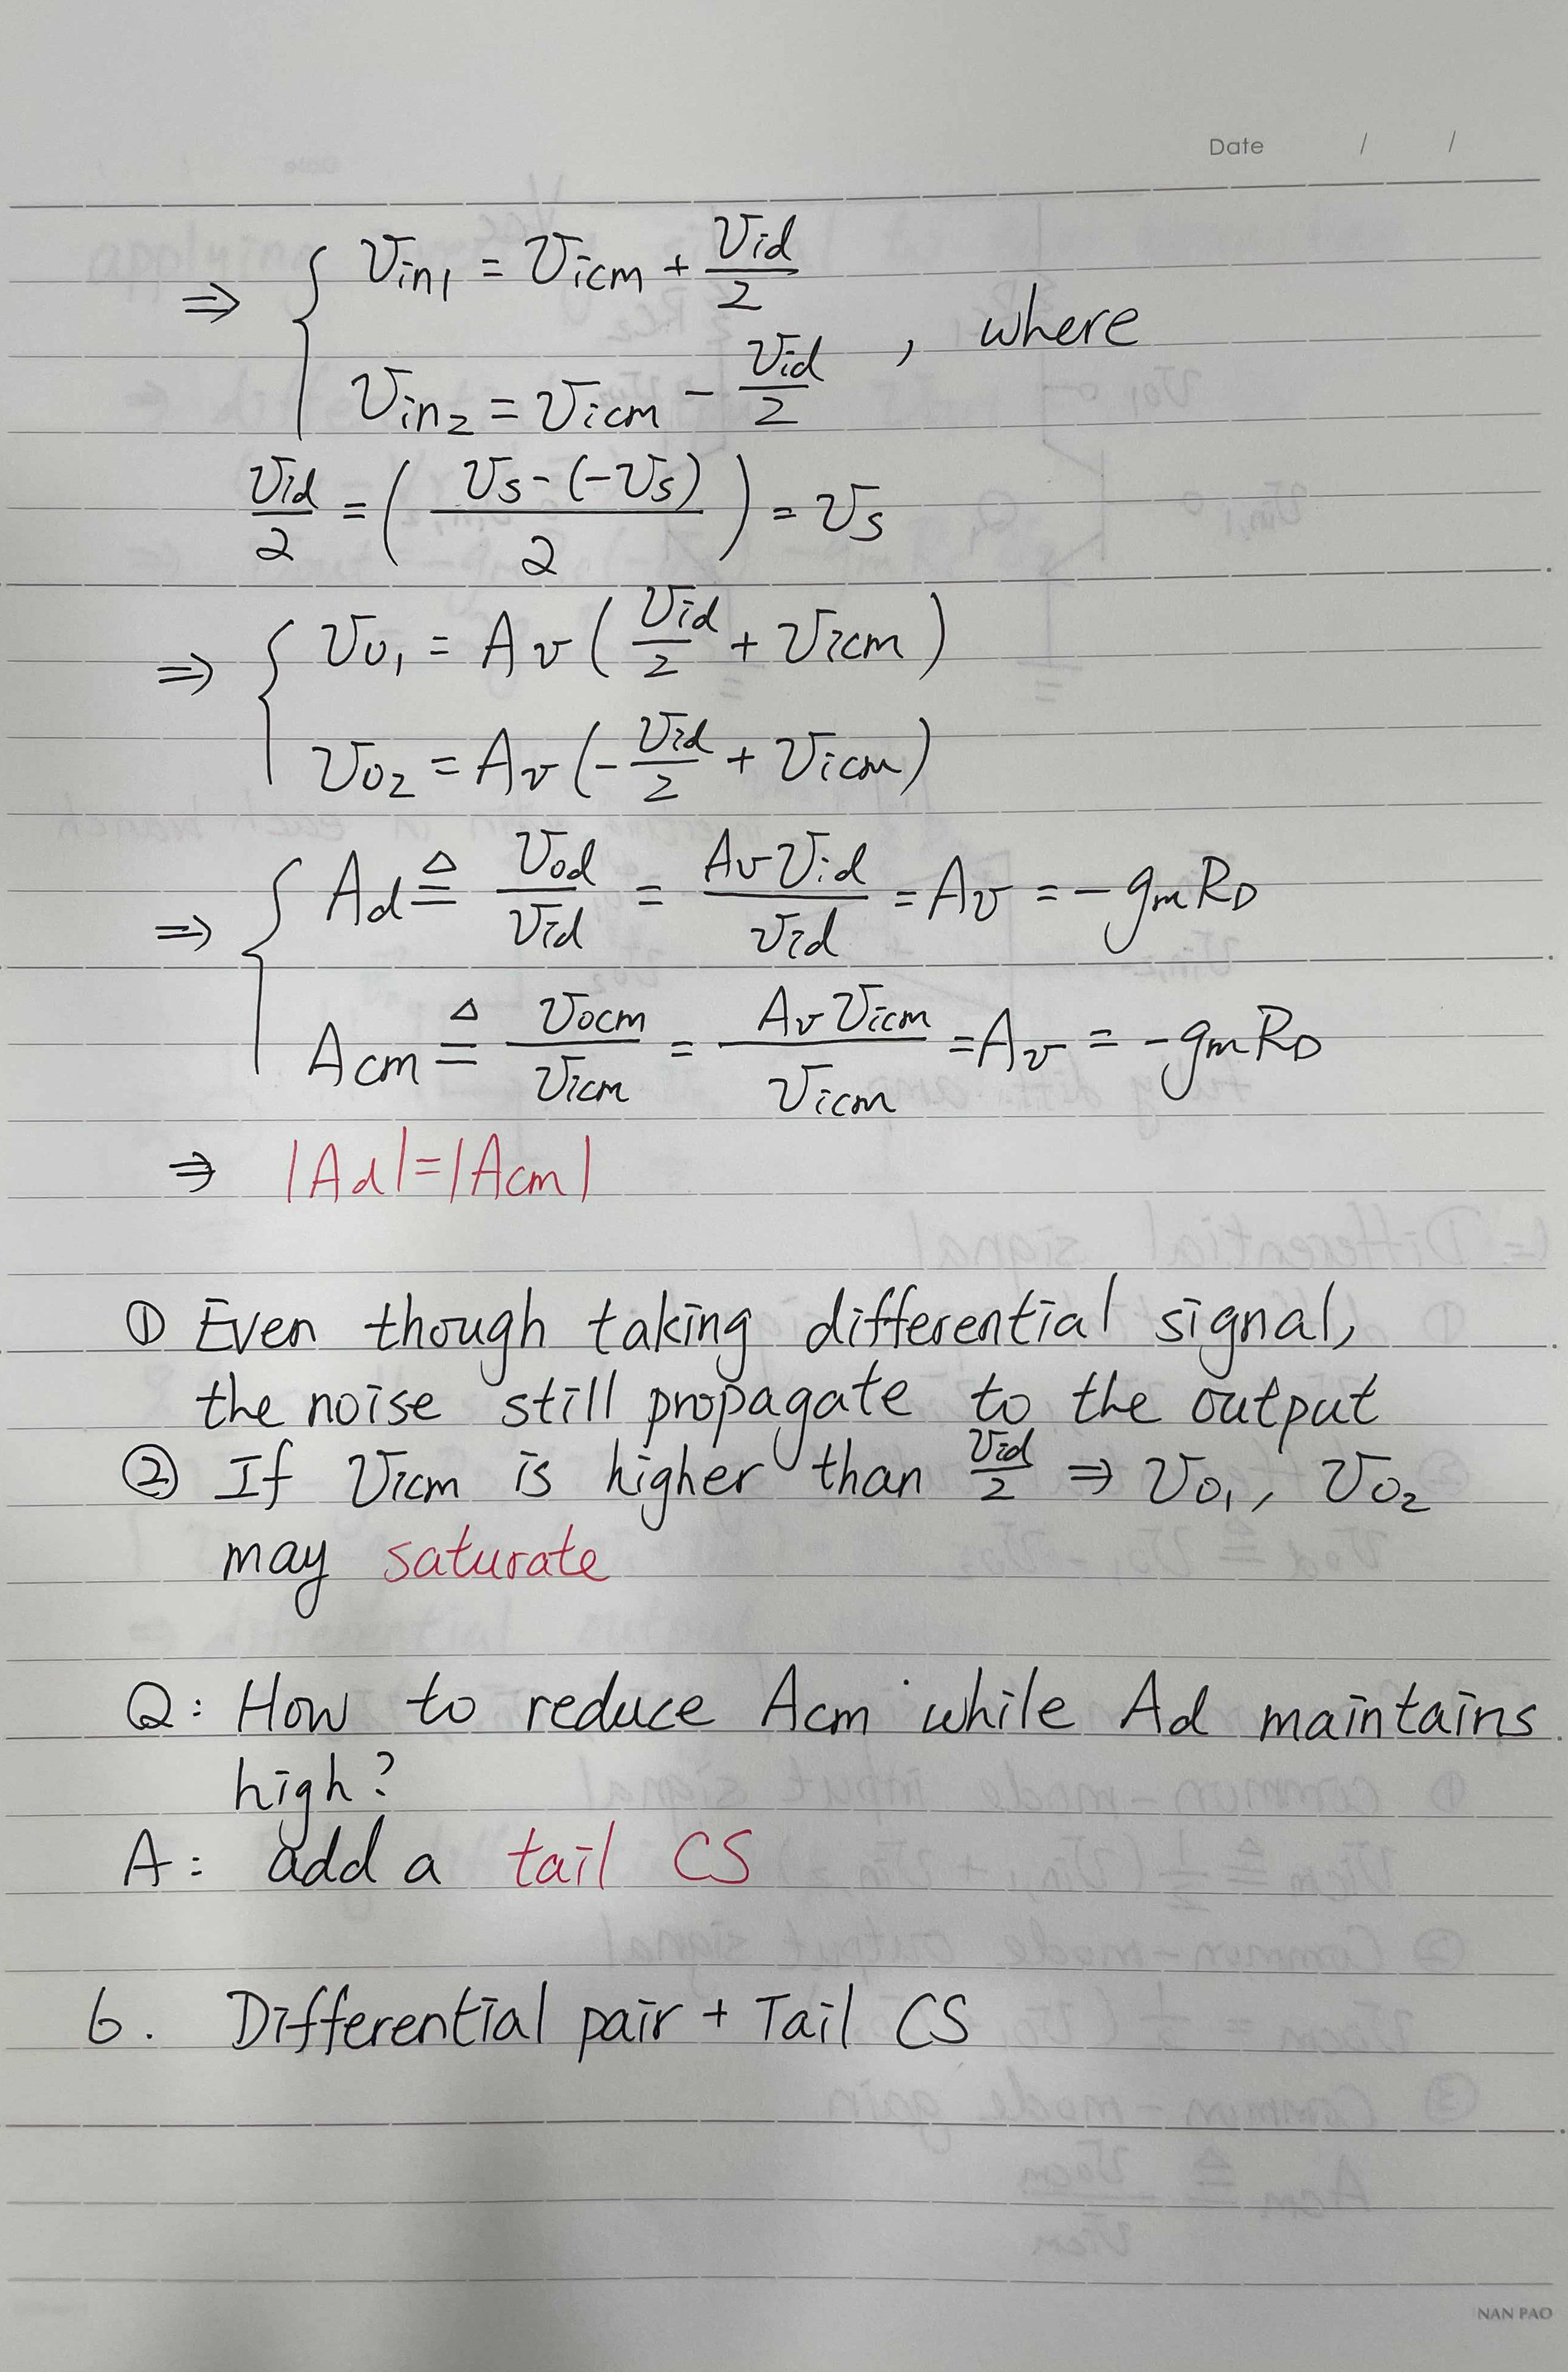 Date / /
⇒ { Vin1 = Vicm + Vid/2
Vin2 = Vicm - Vid/2 , where
Vid/2 = ( (Vs-(-Vs))/2 ) = Vs
⇒ { Vo1 = Av ( Vid/2 + Vicm )
Vo2 = Av (- Vid/2 + Vicm )
⇒ { Ad ≜ Vod/Vid = AvVid/Vid = Av = -gmRD
Acm ≜ Vocm/Vicm = AvVicm/Vicm = Av = -gmRD
⇒ |Ad|=|Acm|
① Even though taking differential signal,
the noise still propagate to the output
② If Vicm is higher than Vid/2 ⇒ Vo1, Vo2
may saturate
Q: How to reduce Acm while Ad maintains
high?
A: add a tail CS
6. Differential pair + Tail CS
NAN PAO